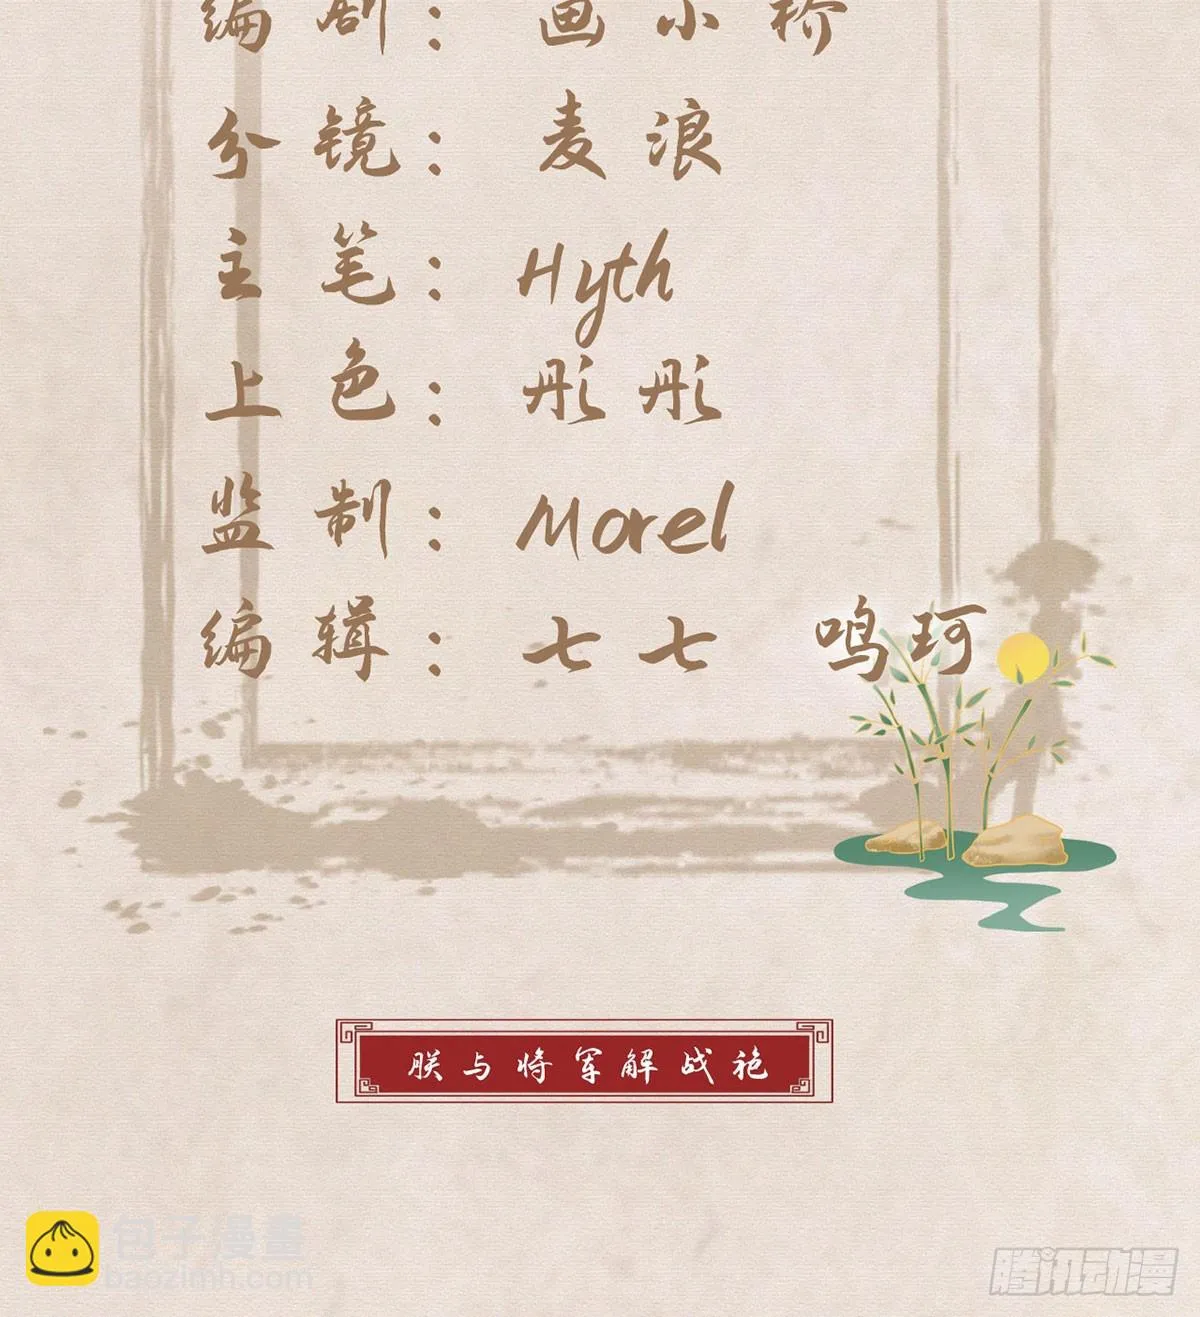 编剧：画小桥
分镜：麦浪
主笔：Hyth
上色：彤彤
监制：Morel
编辑：七七 鸣珂
朕与将军解战袍
包子漫畫
baozimh.com
腾讯动漫